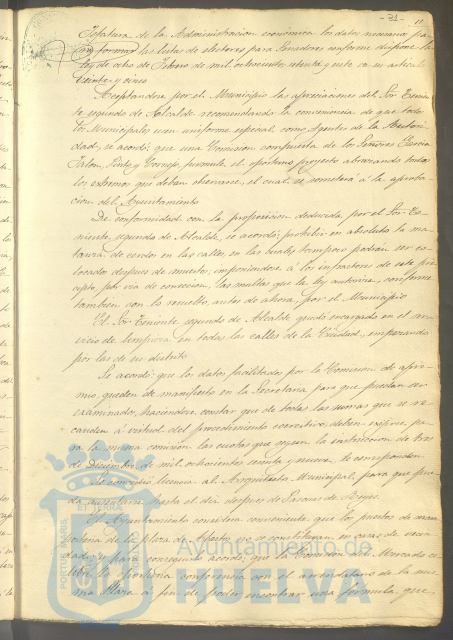 - 21 -
11
Jefatura de la Administracion economica los datos necesarios pa
ra formar las listas de electores para Senadores conforme dispone la
Ley de ocho de Febrero de mil ochocientos setenta y siete en su articulo
veinte y cinco
Aceptandose por el Municipio las apreciaciones del Sor Tenien
te segundo de Alcalde recomendando la conveniencia de que todos
los Municipales usen uniforme especial, como Agentes de la Autori
dad, se acordó: que una Comision compuesta de los Señores Garcia
Jalon, Pinto y Cornejo, formule el oportuno proyecto abrazando todos
los extremos que deban observarse, el cual se someterá á la aproba
cion del Ayuntamiento
De conformidad con la proposicion deducida por el Sor Te
niente segundo de Alcalde, se acordó: prohibir en absoluto la ma
tanza de cerdos en las calles, en las cuales tampoco podrán ser co
locados despues de muertos, imponiendose á los infractores de este pre
cepto, por via de correccion, las multas que la ley autoriza, conforme
tambien con lo resuelto antes de ahora, por el Municipio
El Sor Teniente segundo de Alcalde quedó encargado en el ser
vicio de limpieza en todas las calles de la Ciudad, empezando
por las de su distrito
Se acordó: que los datos facilitados por la Comision de apre
mio, queden de manifiesto en la Secretaria para que puedan ser
examinados, haciendose constar que de todas las sumas que se re
cauden á virtud del procedimiento ejecutivo, deben exigirse pa
ra la misma comision las cuotas que segun la instruccion de tres
de Diciembre de mil ochocientos sesenta y nueve le corresponden
Se concedió licencia al Arquitecto Municipal, para que pue
da ausentarse hasta el dia despues de Pascua de Reyes
El Ayuntamiento considera conveniente que los puestos de
de la plaza de Abastos no se constituyan en casas de
y por consiguiente acordó: que la Comision del Mercado ce
lebre la oportuna conferencia con el arrendatario de la mis
ma Plaza á fin de poder encontrar una formula, que
PORTUS MARIS
ET TERRAE
Ayuntamiento de
HUELVA